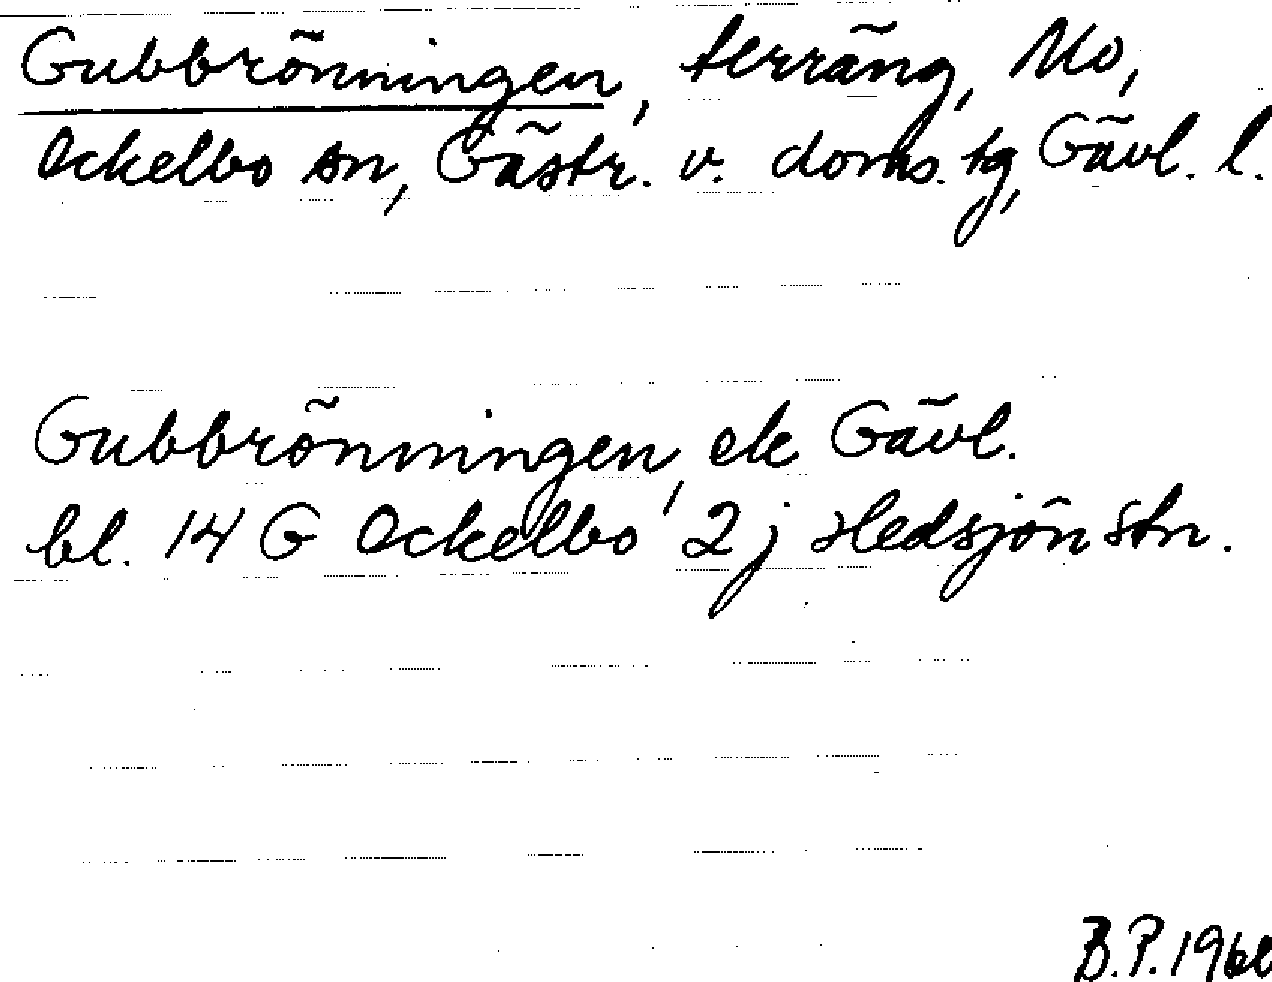 Gubbrönningen, terräng, Mo,
Ockelbo sn, Gästr. v. doms. tg, Gävl. l.
Gubbrönningen, ek Gävl.
bl. 14 G Ockelbo 2 j Hedsjön Stn.
B.P.